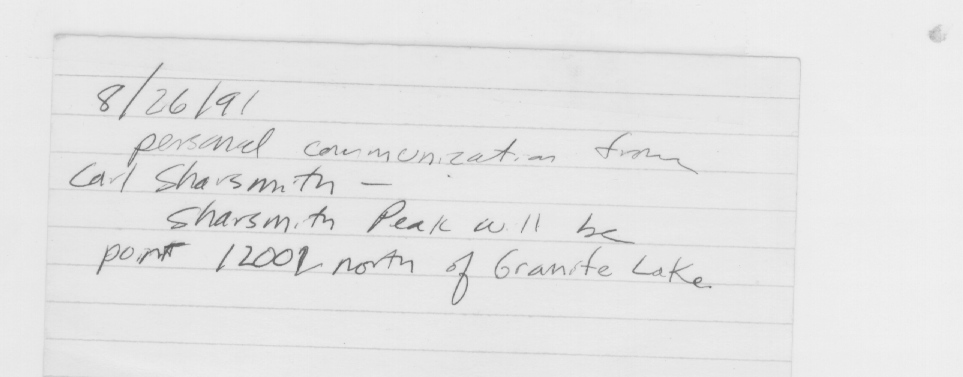 8/26/91
personal communization from
Carl Sharsmith –
Sharsmith Peak will be
point 12002 north of Granite Lake